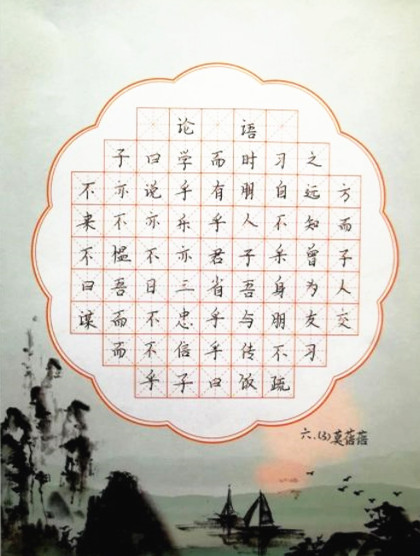 论语
子曰学而时习之
不亦说乎有朋自远方
来不亦乐乎人不知而
不愠不亦君子乎曾子
曰吾日三省吾身为人
谋而不忠乎与朋友交
而不信乎传不习
乎子曰饭疏
六.(3)莫蓓蓓